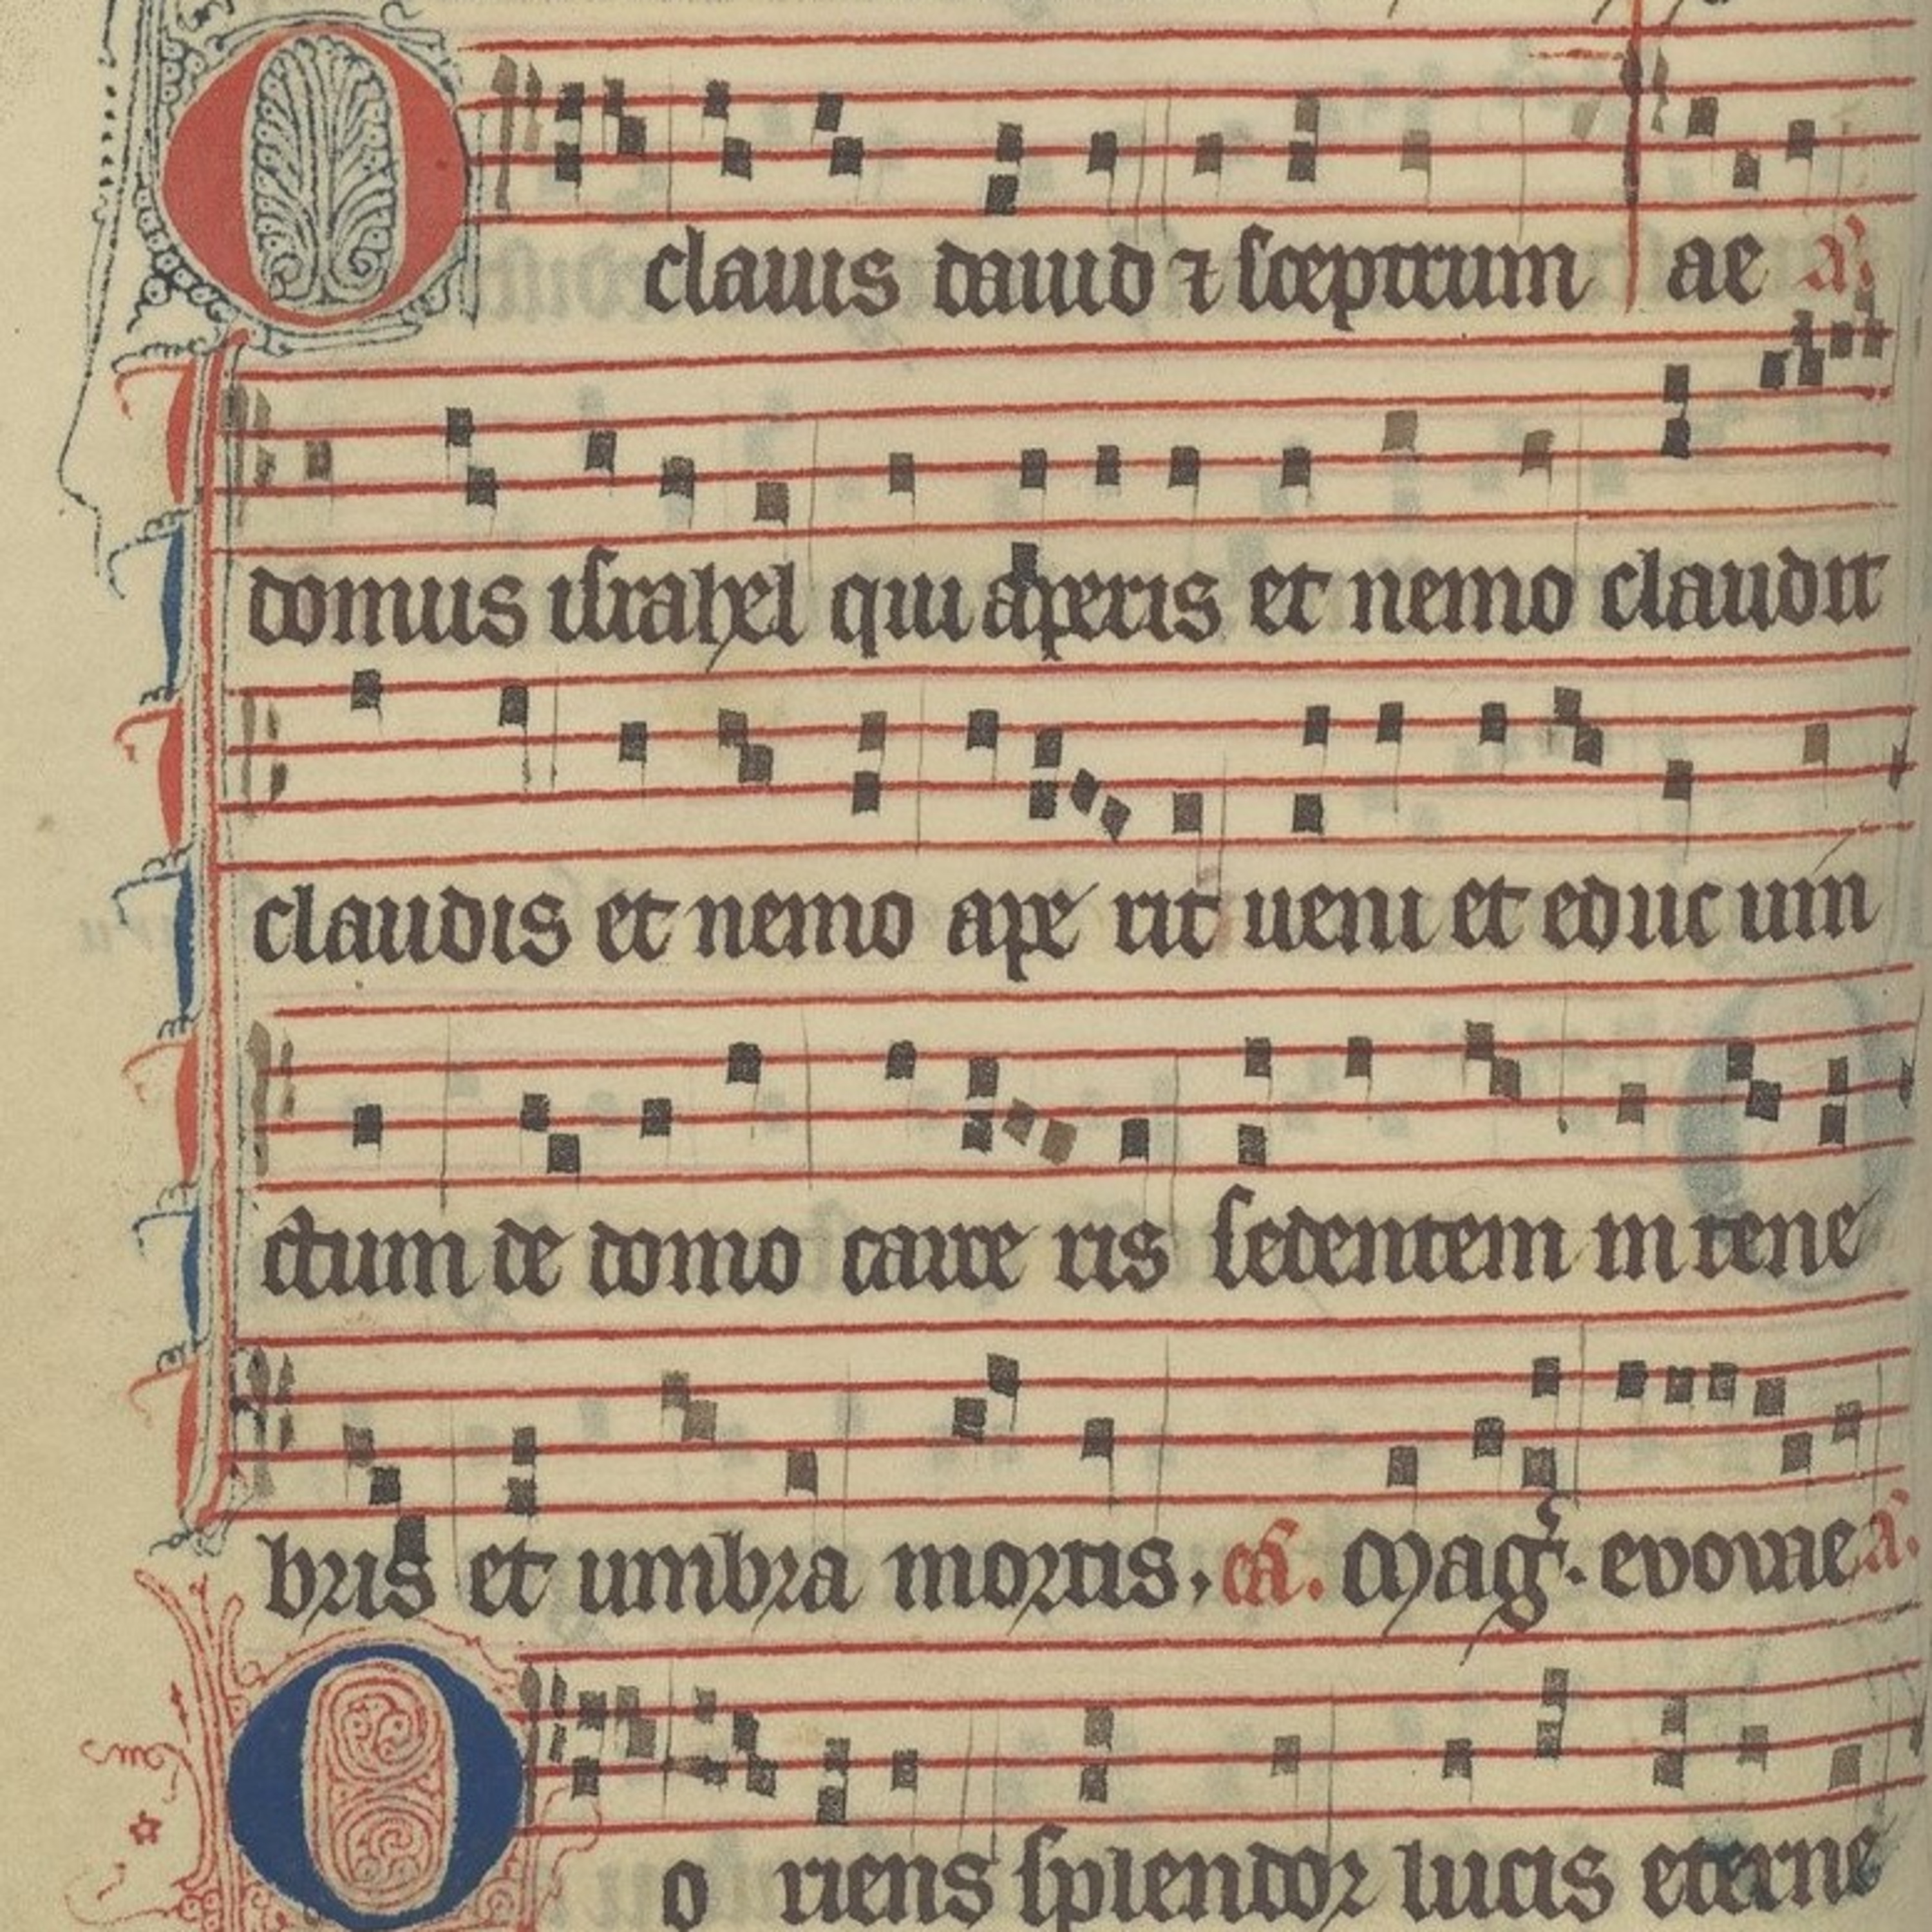 O clauis dauid ⁊ sceptrum ae a͛
domus israhel qui aperis et nemo claudit
claudis et nemo ape rit ueni et educ uin
ctum de domo carce ris sedentem in tene
bris et umbra mortis. Mag. evovae a͛
O o riens splendor lucis eterne